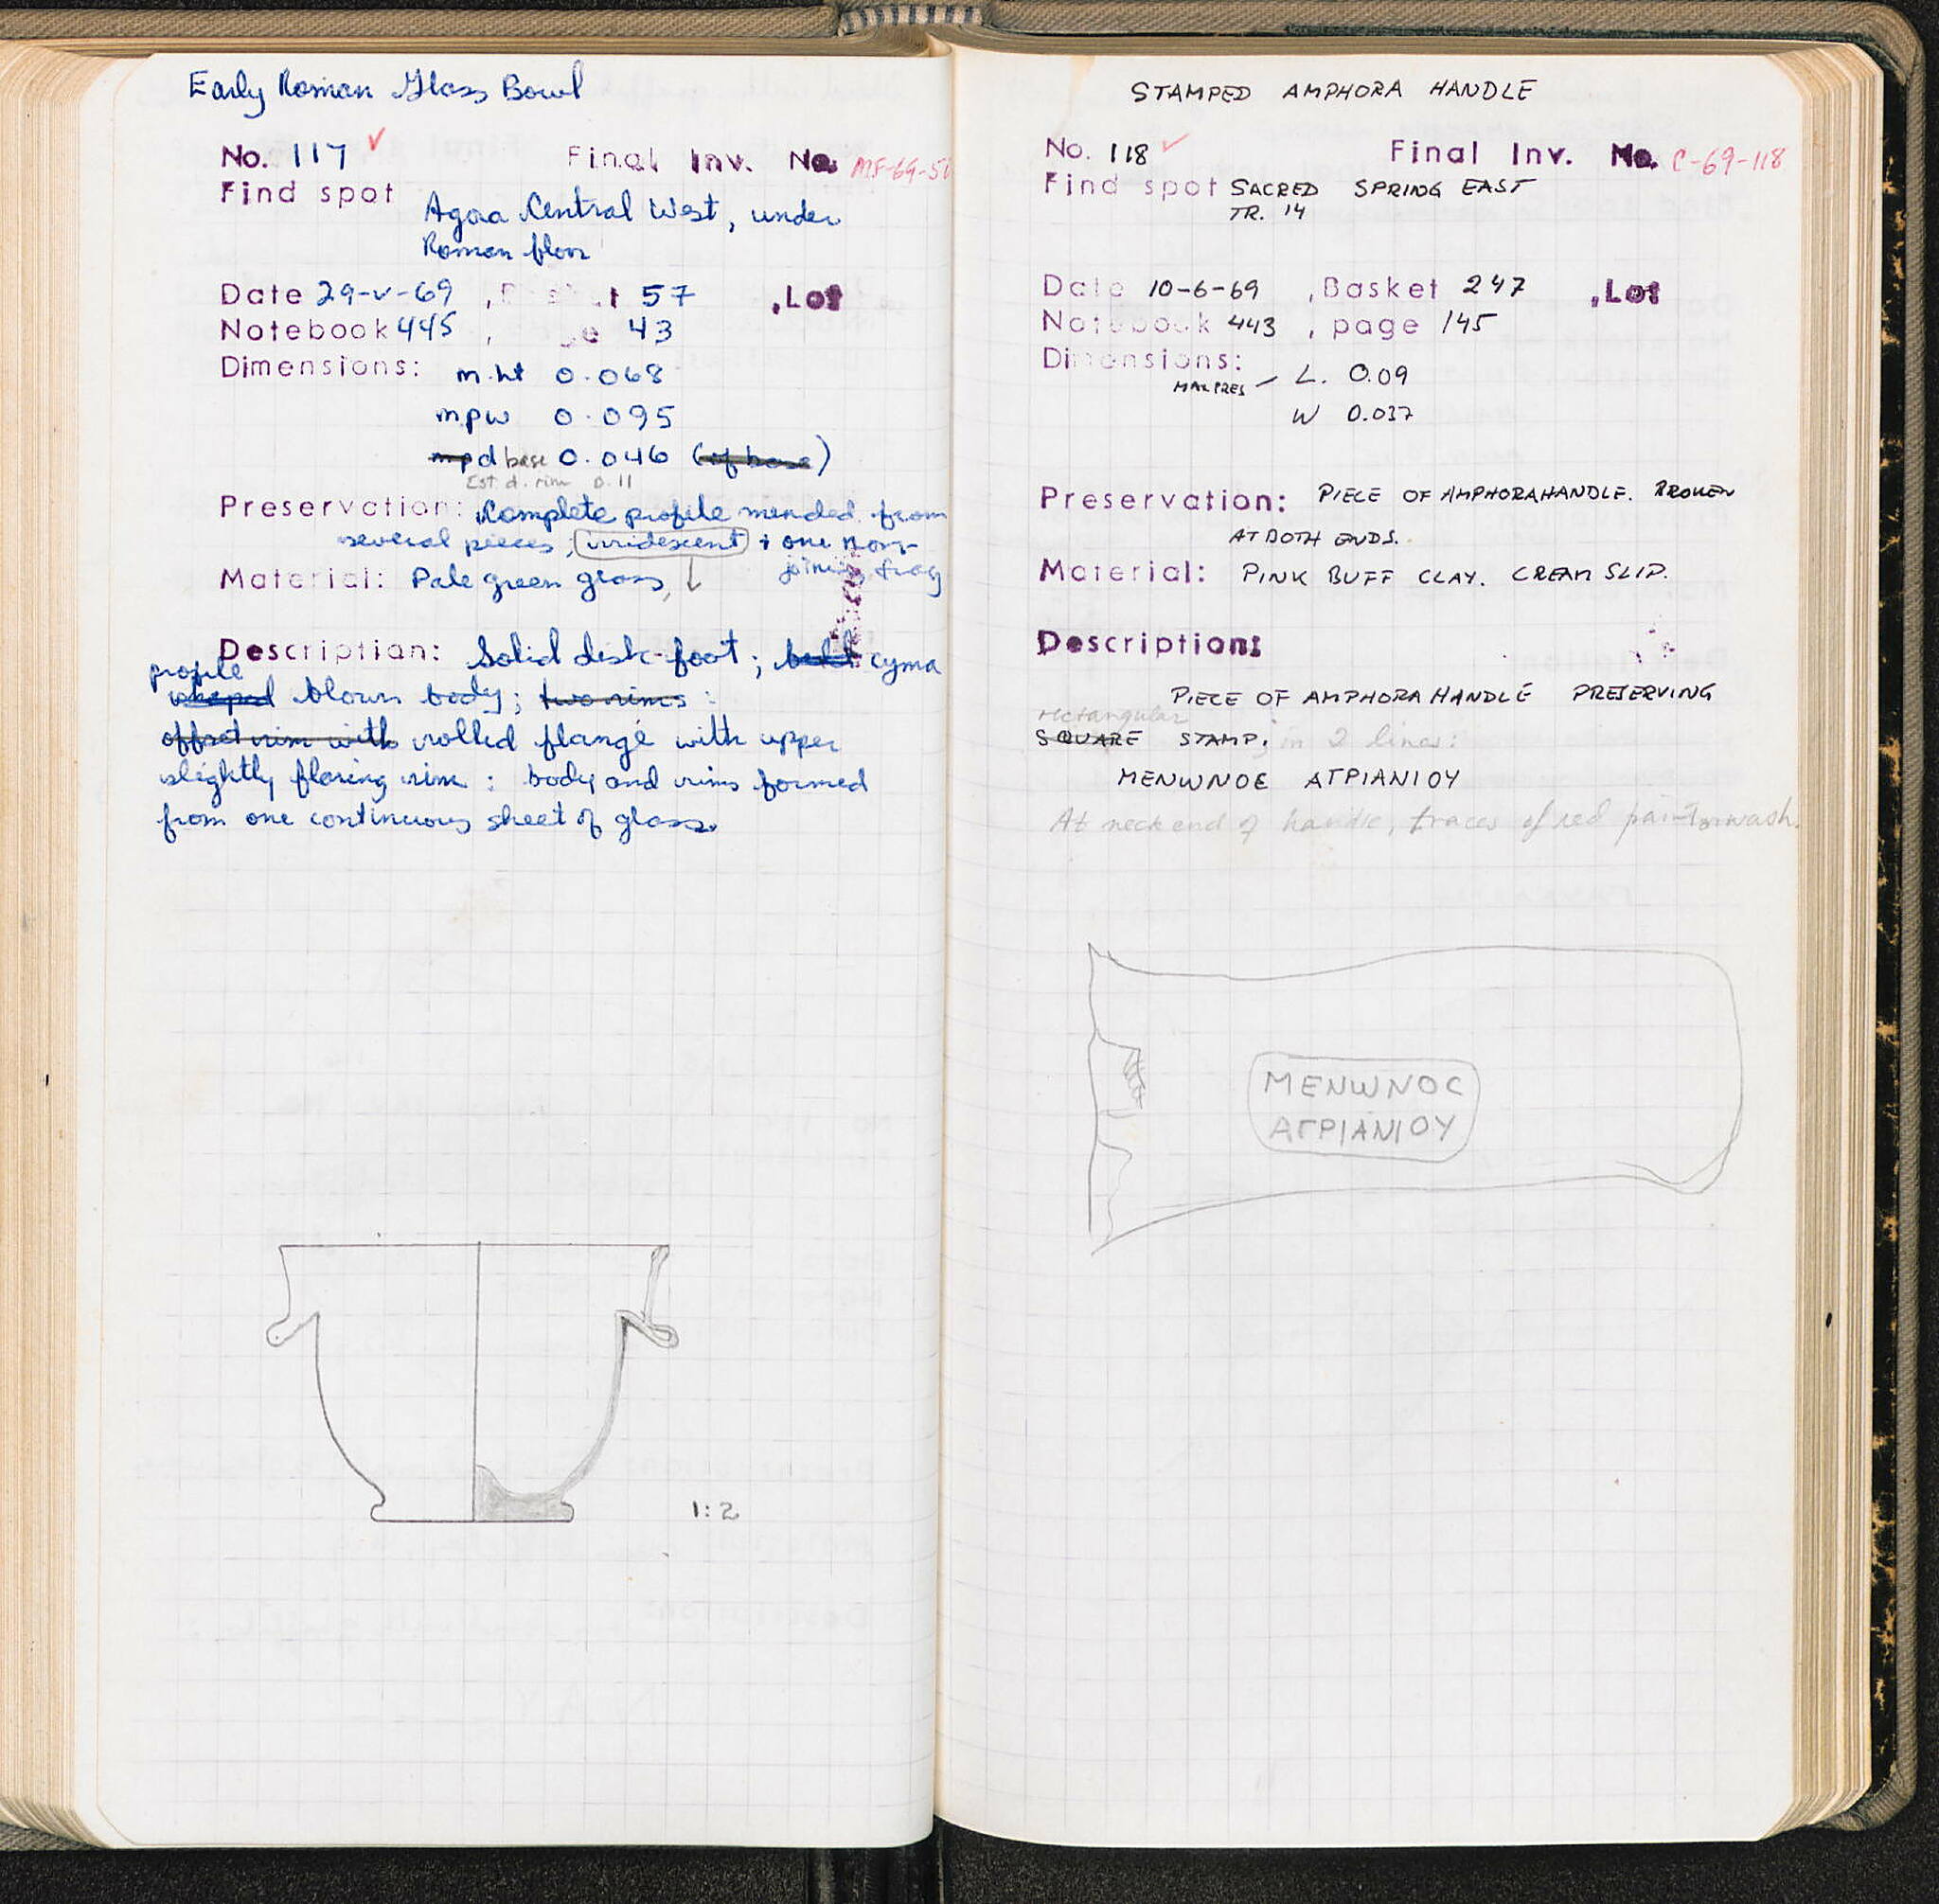 Early Roman Glass Bowl
No. 117 ✓ Final Inv. No. MF-69-50
Find spot Agora Central West, under
Roman floor
Date 29-V-69 , Basket 57 , Lot
Notebook 445 , page 43
Dimensions: m.ht 0.068
mpw 0.095
mpd base 0.046 (of base)
Est. d. rim 0.11
Preservation: Complete profile mended from
several pieces; irridescent + one non-
joining frag
Material: Pale green glass, ↓
Description: Solid disk-foot; cyma
profile
shaped blown body; two rims :
offset rim with rolled flange with upper
slightly flaring rim : body and rims formed
from one continuous sheet of glass.
1:2
STAMPED AMPHORA HANDLE
No. 118 ✓ Final Inv. No. C-69-118
Find spot SACRED SPRING EAST
TR. 14
Date 10-6-69 , Basket 247 , Lot
Notebook 443 , page 145
Dimensions:
MAX PRES — L. 0.09
W 0.037
Preservation: PIECE OF AMPHORA HANDLE. BROKEN
AT BOTH ENDS.
Material: PINK BUFF CLAY. CREAM SLIP.
Description:
PIECE OF AMPHORA HANDLE PRESERVING
rectangular
SQUARE STAMP, in 2 lines:
ΜΕΝWΝΟΕ ΑΓΡΙΑΝΙΟΥ
At neck end of handle, traces of red paint or wash.
ΜΕΝWΝΟC
ΑΓΡΙΑΝΙΟΥ